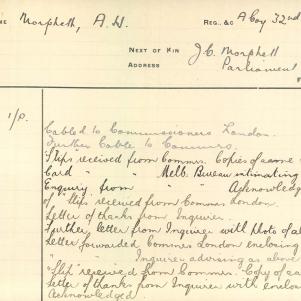 ME Morphett, A. H. REG. &C A Coy 32nd
NEXT OF KIN J. C. Morphett
ADDRESS Parliament
1/P.
Cabled to Commissioners London.
Further Cable to Commrs.
"Slips" received from Commrs. Copies of same
Card " " Melb. Bureau intimating
Enquiry from " " Acknowledg
of "slips received from Commrs London.
Letter of thanks from Inquirer.
Further letter from Inquirer with photo of
Letter forwarded Commrs London enclosing
" " Inquirer advising as above
"Slip" received from Commrs. Copy of same
Letter of thanks from Inquirer with enclo
Acknowledged